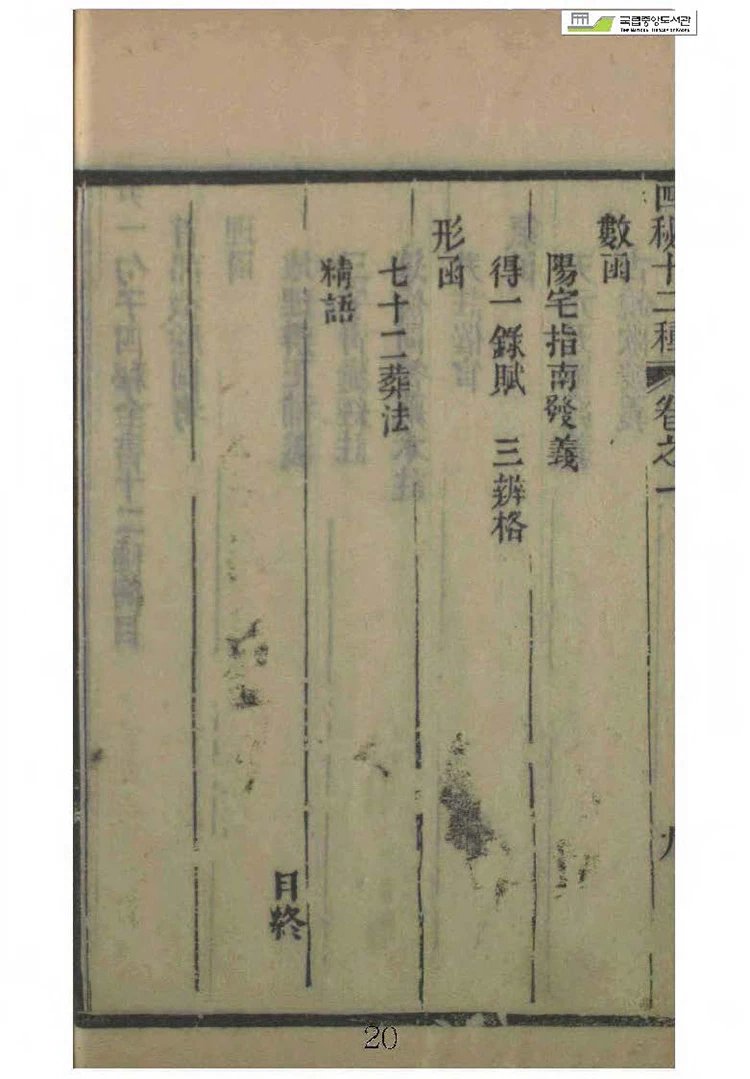 국립중앙도서관
THE NATIONAL LIBRARY OF KOREA
四秘十二種 卷之一 九
數函
陽宅指南發義
得一錄賦 三辨格
形函
七十二葬法
精語
目終
20